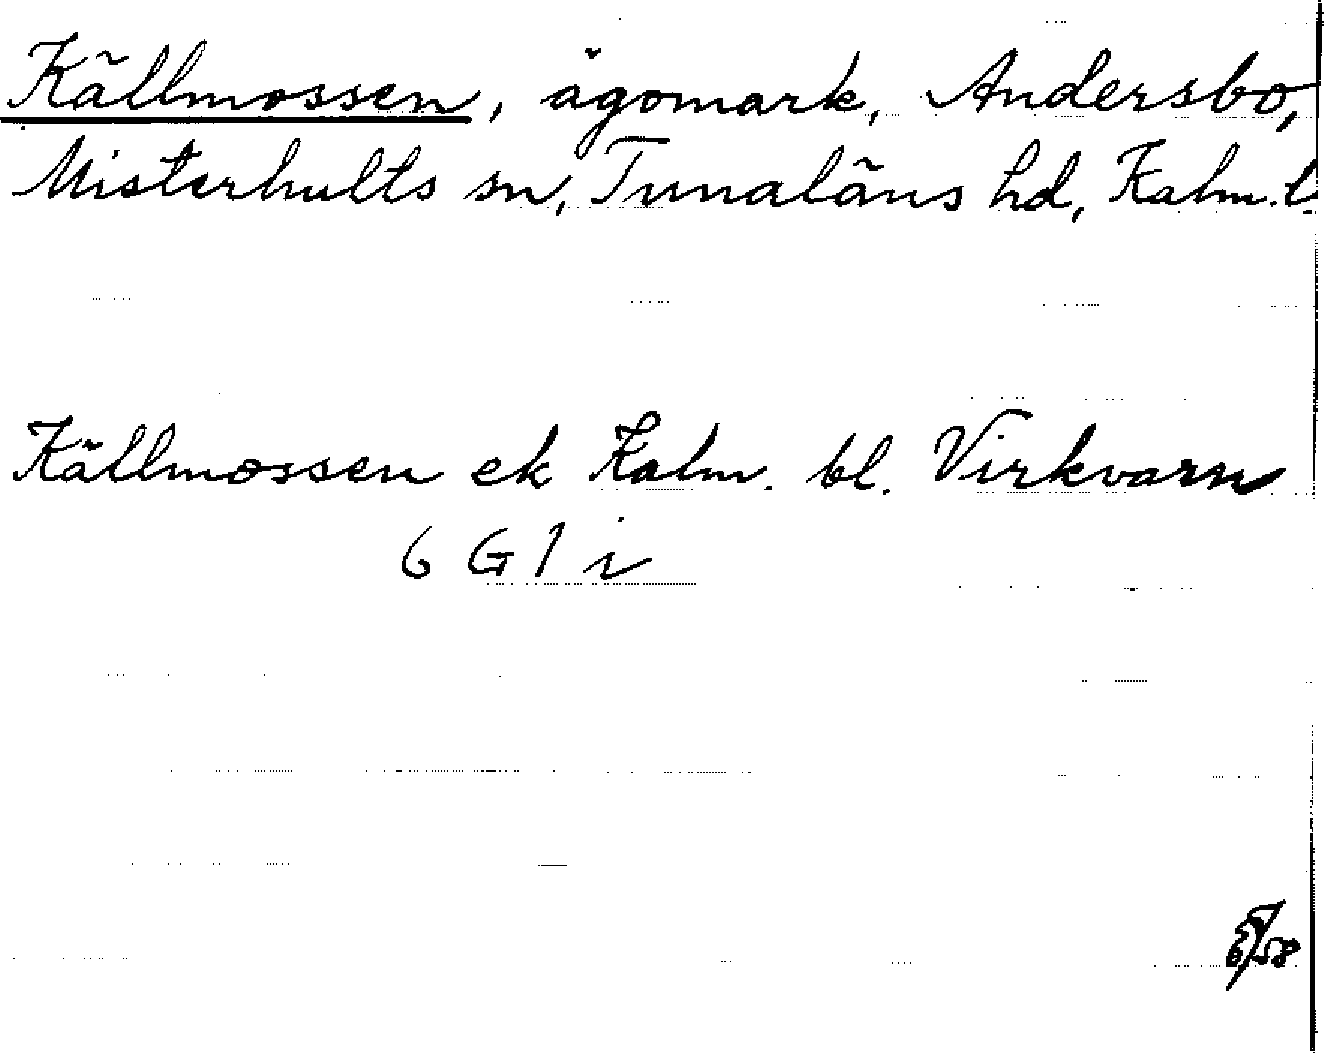 Källmossen, ägomark, Andersbo,
Misterhults sn, Tunaläns hd, Kalm. l.
Källmossen ek Kalm. bl. Virkvarn
6 G 1 i